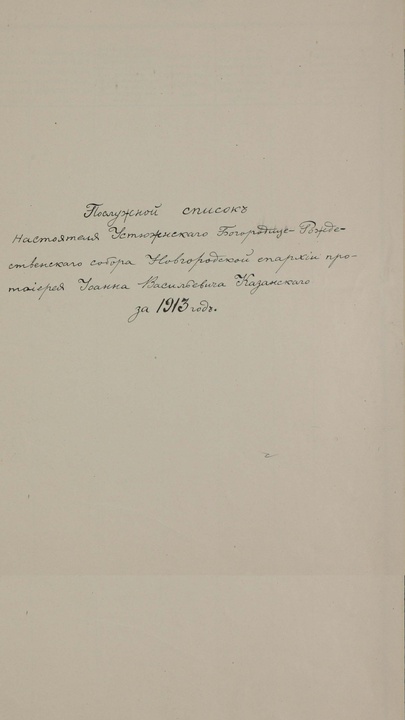 Послужной списокъ
Настоятеля Устюженскаго Богородице-Рожде-
ственскаго собора Новгородской епархіи про-
тоіерея Іоанна Васильевича Казанскаго
за 1913 годъ.